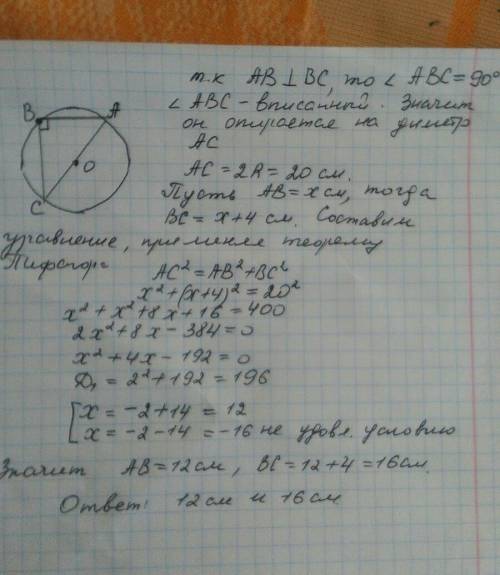 т.к АВ⊥ВС, то ∠ АВС = 90°
∠ АВС - вписанный. Значит
он опирается на диметр
АС
АС = 2R = 20 см.
Пусть АВ = х см, тогда
ВС = х+4 см. Составим
уравнение, применяя теорему
Пифагора
АС² = АВ² + ВС²
х² + (х+4)² = 20²
х² + х² + 8х + 16 = 400
2х² + 8х - 384 = 0
х² + 4х - 192 = 0
Д₁ = 2² + 192 = 196
[х = -2+14 = 12
х = -2-14 = -16 не удовл. условию
Значит АВ = 12 см, ВС = 12+4 = 16 см.
Ответ: 12 см и 16 см
В А
О
С